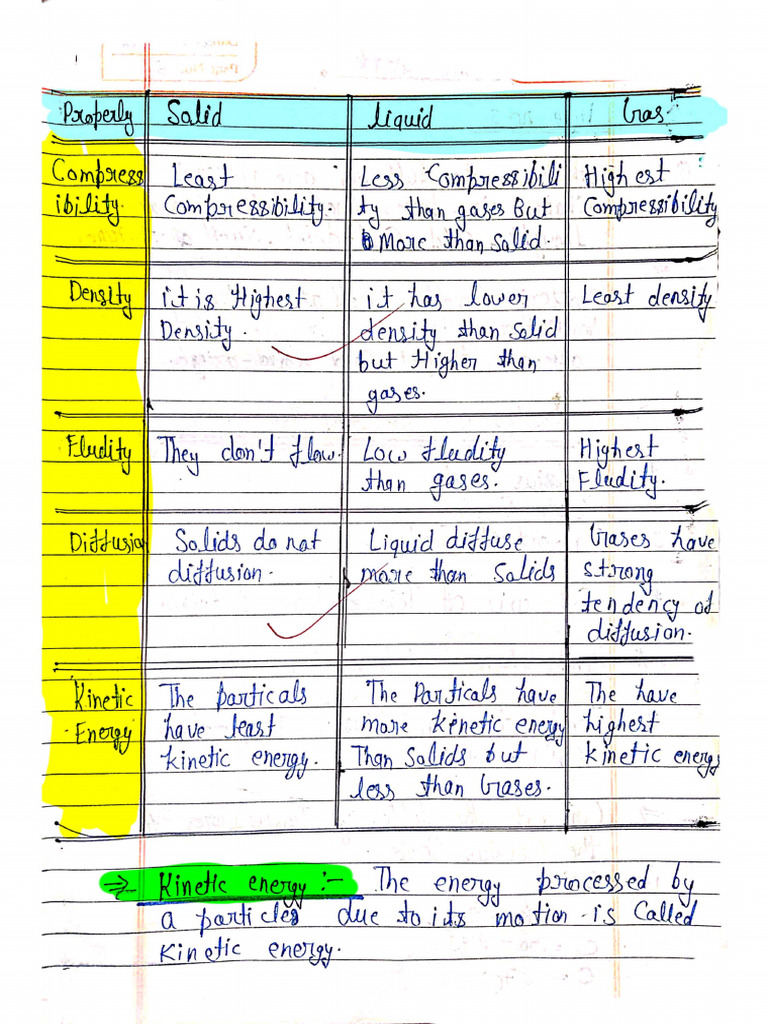 Properly Solid liquid Gas.
Compress
ibility.
Least
Compressibility.
Less Compressibili
ty than gases But
More than Solid.
Highest
Compressibility
Density
it is Highest
Density.
it has lower
density than Solid
but Higher than
gases.
Least density
Fludity
They don't flow.
Low fludity
than gases.
Highest
Fludity.
Diffusion
Solids do not
diffusion.
Liquid diffuse
more than Solids
Gases have
strong
tendency of
diffusion.
Kinetic
Energy
The particals
have least
kinetic energy.
The Particals have
more kinetic energy
Than Solids but
less than Gases.
The have
highest
kinetic energy
⇒ Kinetic energy :- The energy processed by
a particles due to its motion is Called
Kinetic energy.